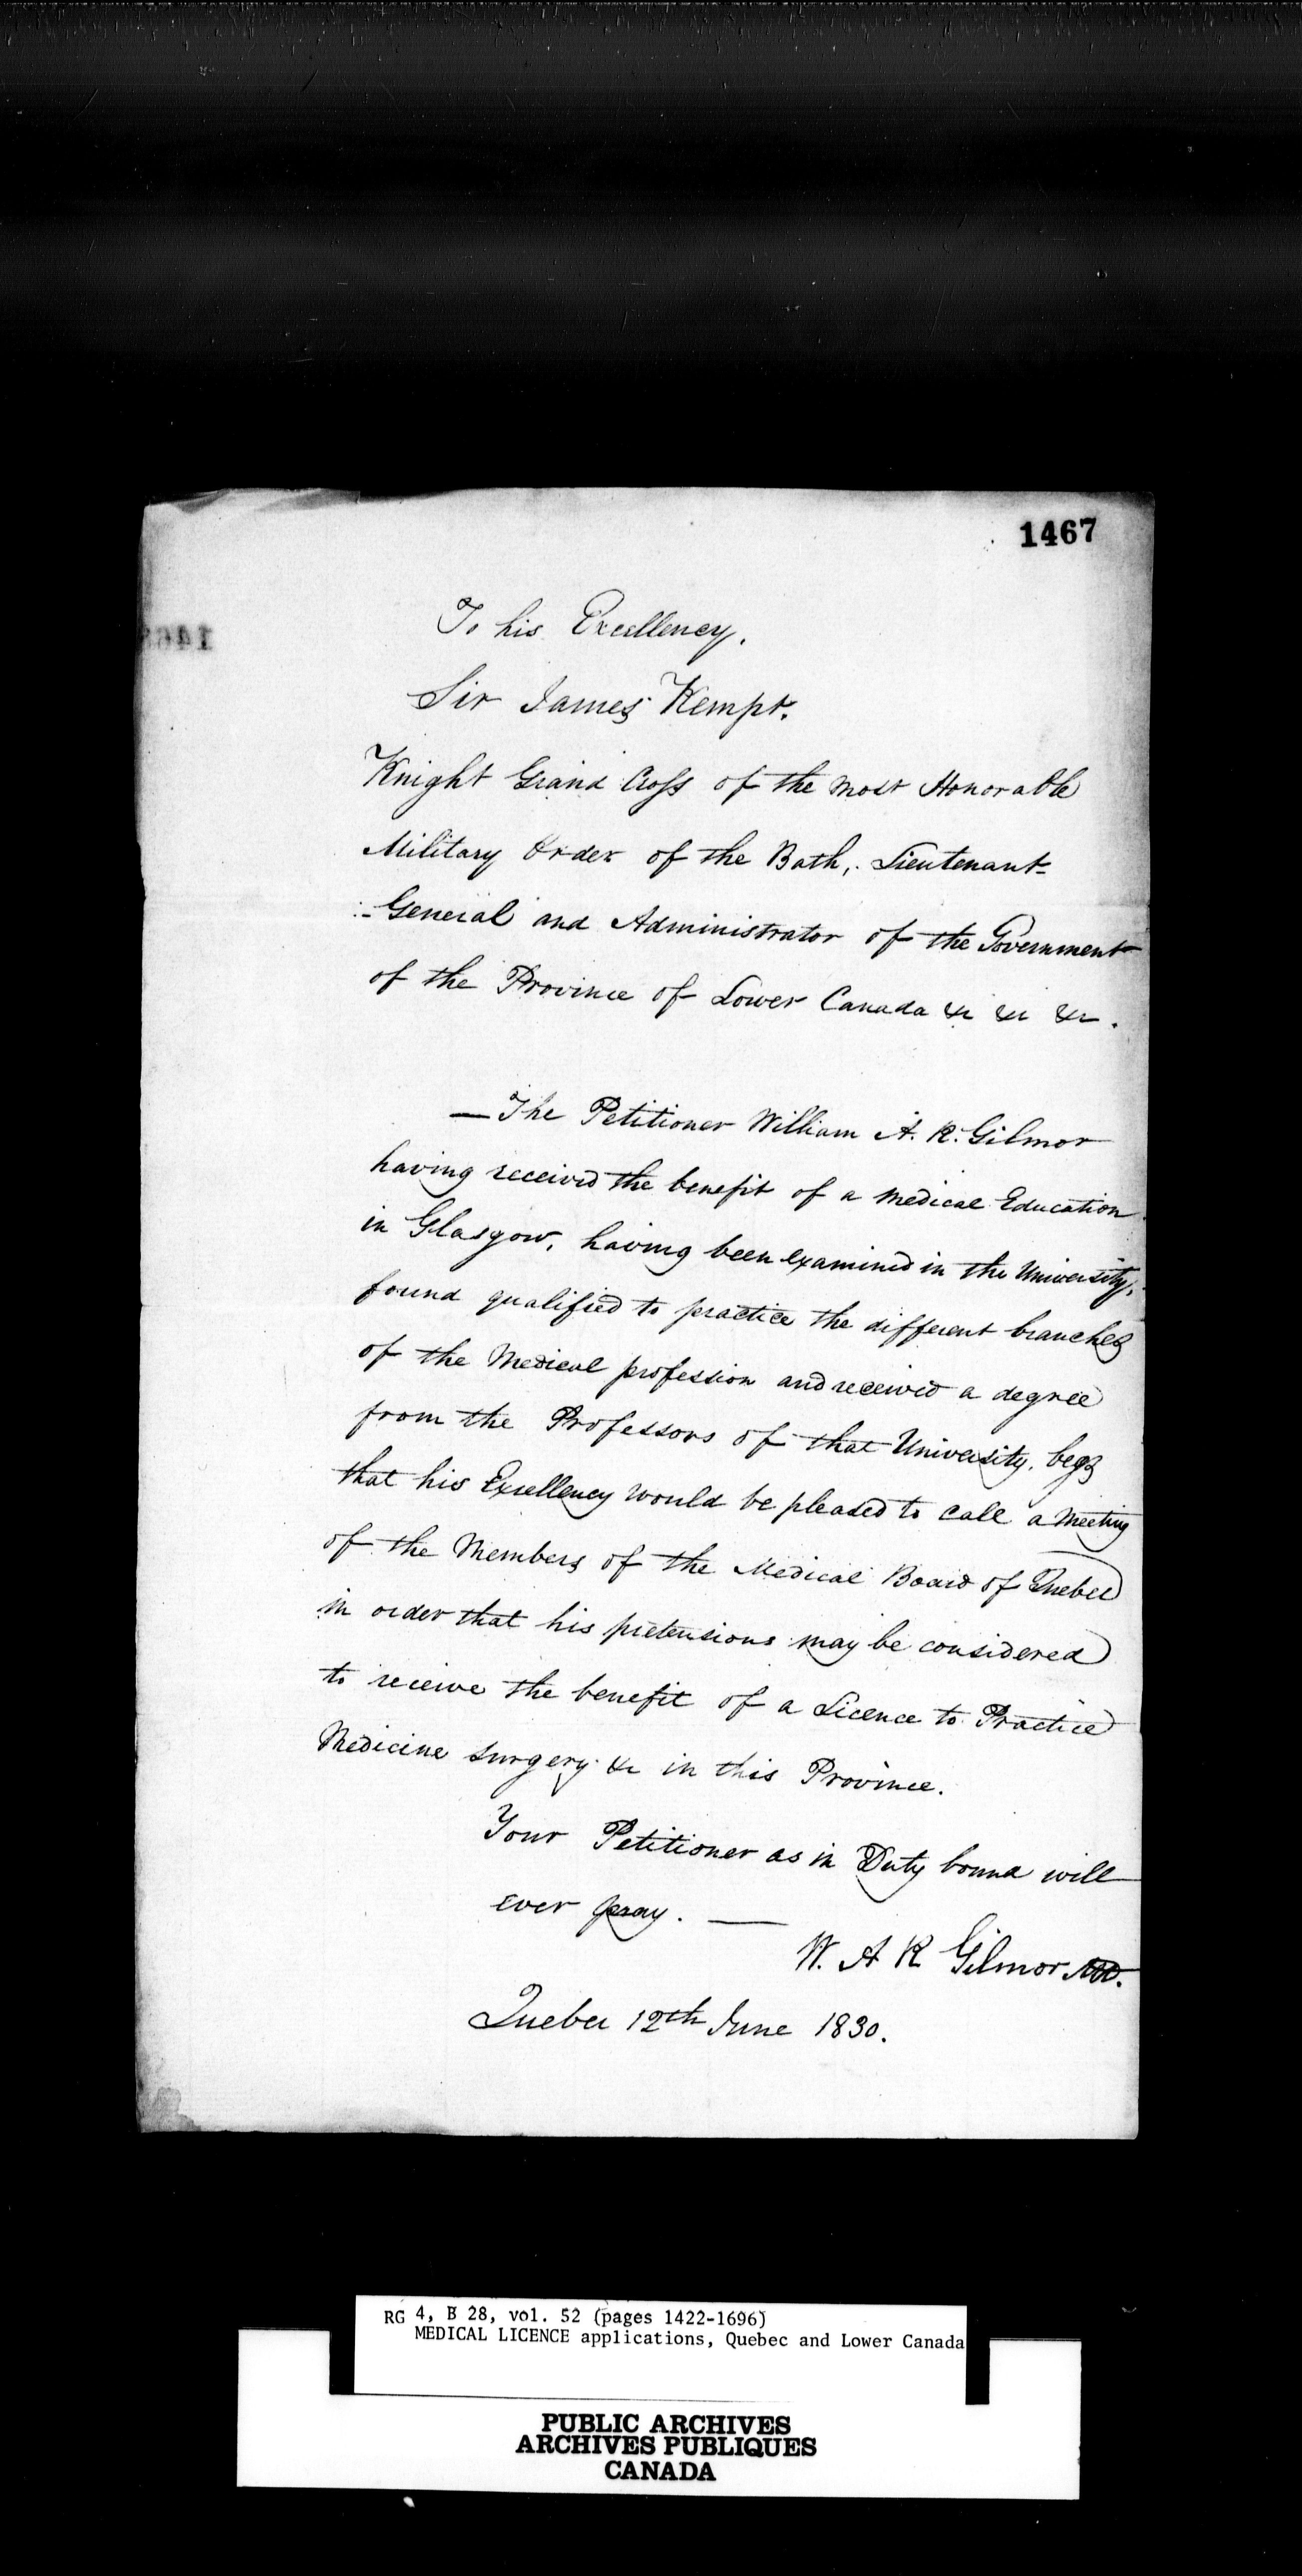 1467
To his Excellency.
Sir James Kempt.
Knight Grand Cross of the most Honorable
Military Order of the Bath, Lieutenant-
-General and Administrator of the Government
of the Province of Lower Canada &c &c &c.
— The Petitioner William A. R. Gilmor
having received the benefit of a Medical Education
in Glasgow, having been examined in the University,
found qualified to practice the different branches
of the Medical profession and received a degree
from the Professors of that University, begs
that his Excellency would be pleased to call a Meeting
of the Members of the Medical Board of Quebec
in order that his pretensions may be considered
to receive the benefit of a Licence to Practice
Medicine surgery &c in this Province.
Your Petitioner as in Duty bound will
ever pray. —
W. A R Gilmor MD.
Quebec 12th June 1830.
RG 4, B 28, vol. 52 (pages 1422-1696)
MEDICAL LICENCE applications, Quebec and Lower Canada
PUBLIC ARCHIVES
ARCHIVES PUBLIQUES
CANADA